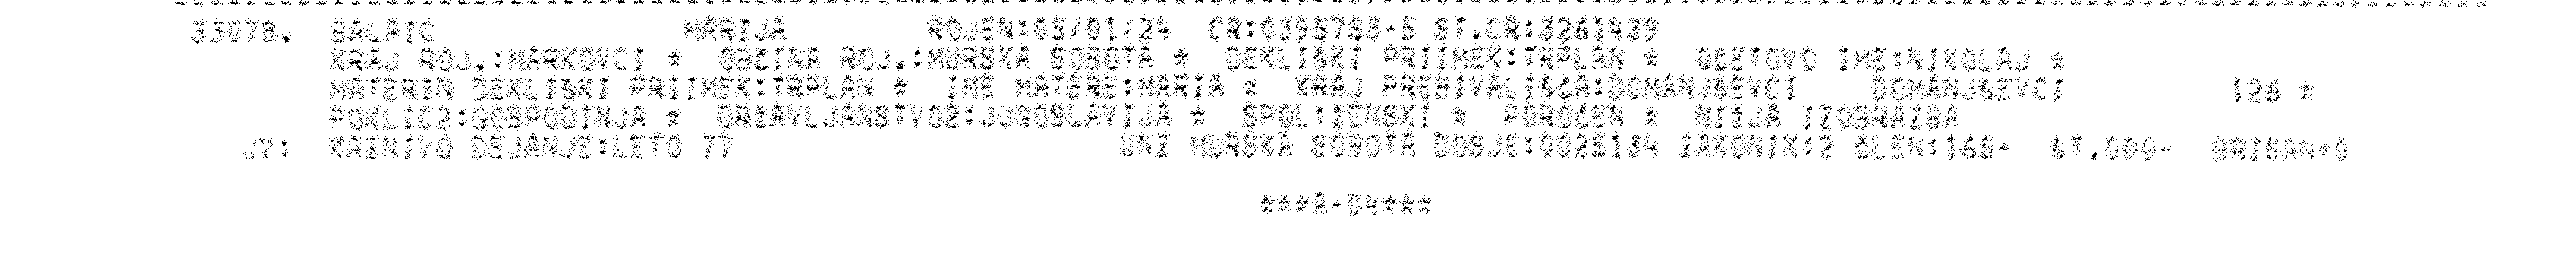 33078. BALAIC MARIJA ROJEN:05/01/24 CR:0395753-5 ST.CR:3261439
KRAJ ROJ.:MARKOVCI * OBČINA ROJ.:MURSKA SOBOTA * DEKLIŠKI PRIIMEK:TRPLAN * OČETOVO IME:NIKOLAJ *
MATERIN DEKLIŠKI PRIIMEK:TRPLAN * IME MATERE:MARIA * KRAJ PREBIVALIŠČA:DOMANJŠEVCI DOMANJŠEVCI 126 *
POKLIC2:GOSPODINJA * DRŽAVLJANSTVO2:JUGOSLAVIJA * SPOL:ŽENSKI * POROČEN * NIŽJA IZOBRAZBA
JV: KAZNIVO DEJANJE:LETO 77 UNZ MURSKA SOBOTA DOSJE:0026134 ZAKONIK:2 ČLEN:165- ŠT.000- BRISAN=0
***A-04***